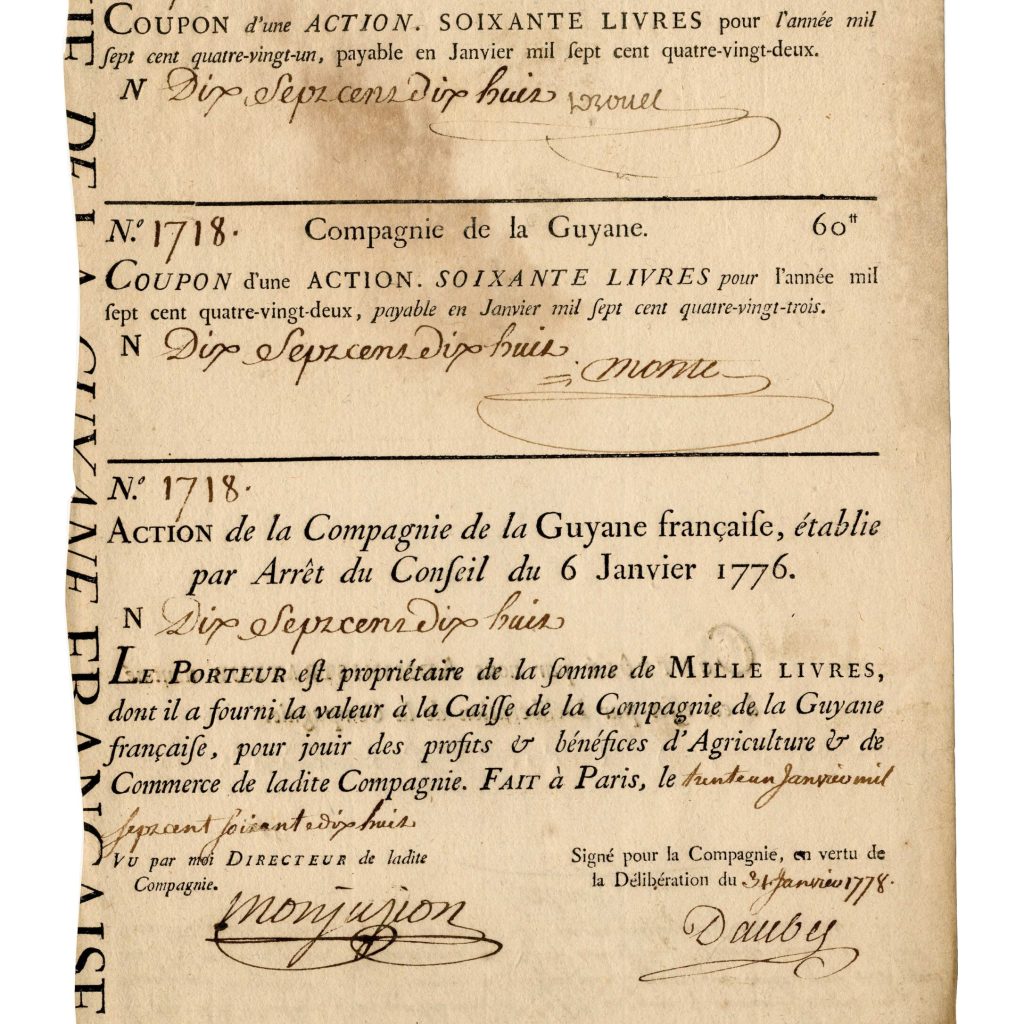 COUPON d'une ACTION. SOIXANTE LIVRES pour l'année mil
ſept cent quatre-vingt-un, payable en Janvier mil ſept cent quatre-vingt-deux.
N Dix Sept cent dix huit
N.º 1718. Compagnie de la Guyane. 60tt
COUPON d'une ACTION. SOIXANTE LIVRES pour l'année mil
ſept cent quatre-vingt-deux, payable en Janvier mil ſept cent quatre-vingt-trois.
N Dix Sept cent dix huit
N.º 1718.
ACTION de la Compagnie de la Guyane françaiſe, établie
par Arrêt du Conſeil du 6 Janvier 1776.
N Dix Sept cent dix huit
LE PORTEUR eſt propriétaire de la ſomme de MILLE LIVRES,
dont il a fourni la valeur à la Caiſſe de la Compagnie de la Guyane
françaiſe, pour jouir des profits & bénéfices d'Agriculture & de
Commerce de ladite Compagnie. FAIT à Paris, le trente un Janvier mil
sept cent soixante dix huit
VU par moi DIRECTEUR de ladite
Compagnie.
Signé pour la Compagnie, en vertu de
la Délibération du 31 Janvier 1778.
Daubey
DE LA GUYANE FRANÇAISE